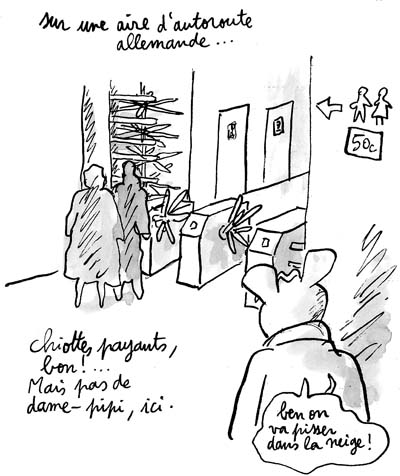 sur une aire d'autoroute
allemande...
50c
chiottes payants,
bon!...
Mais pas de
dame-pipi, ici.
ben on
va pisser
dans la neige!